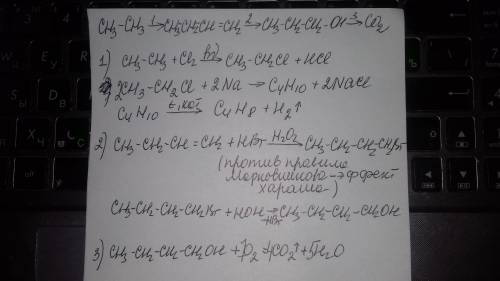 CH3-CH3 1→ CH3CH2CH=CH2 2→ CH3-CH2-CH2-OH 3→ CO2
1) CH3-CH3 + Cl2 hν→ CH3-CH2Cl + HCl
2CH3-CH2Cl + 2Na → C4H10 + 2NaCl
C4H10 t, кат→ C4H8 + H2↑
2) CH3-CH2-CH=CH2 + HBr H2O2→ CH3-CH2-CH2-CH2Br
(против правила
Марковникова → эффект
хараша)
CH3-CH2-CH2-CH2Br + HOH -HBr→ CH3-CH2-CH2-CH2OH
3) CH3-CH2-CH2-CH2OH + O2 → 4CO2↑ + 5H2O